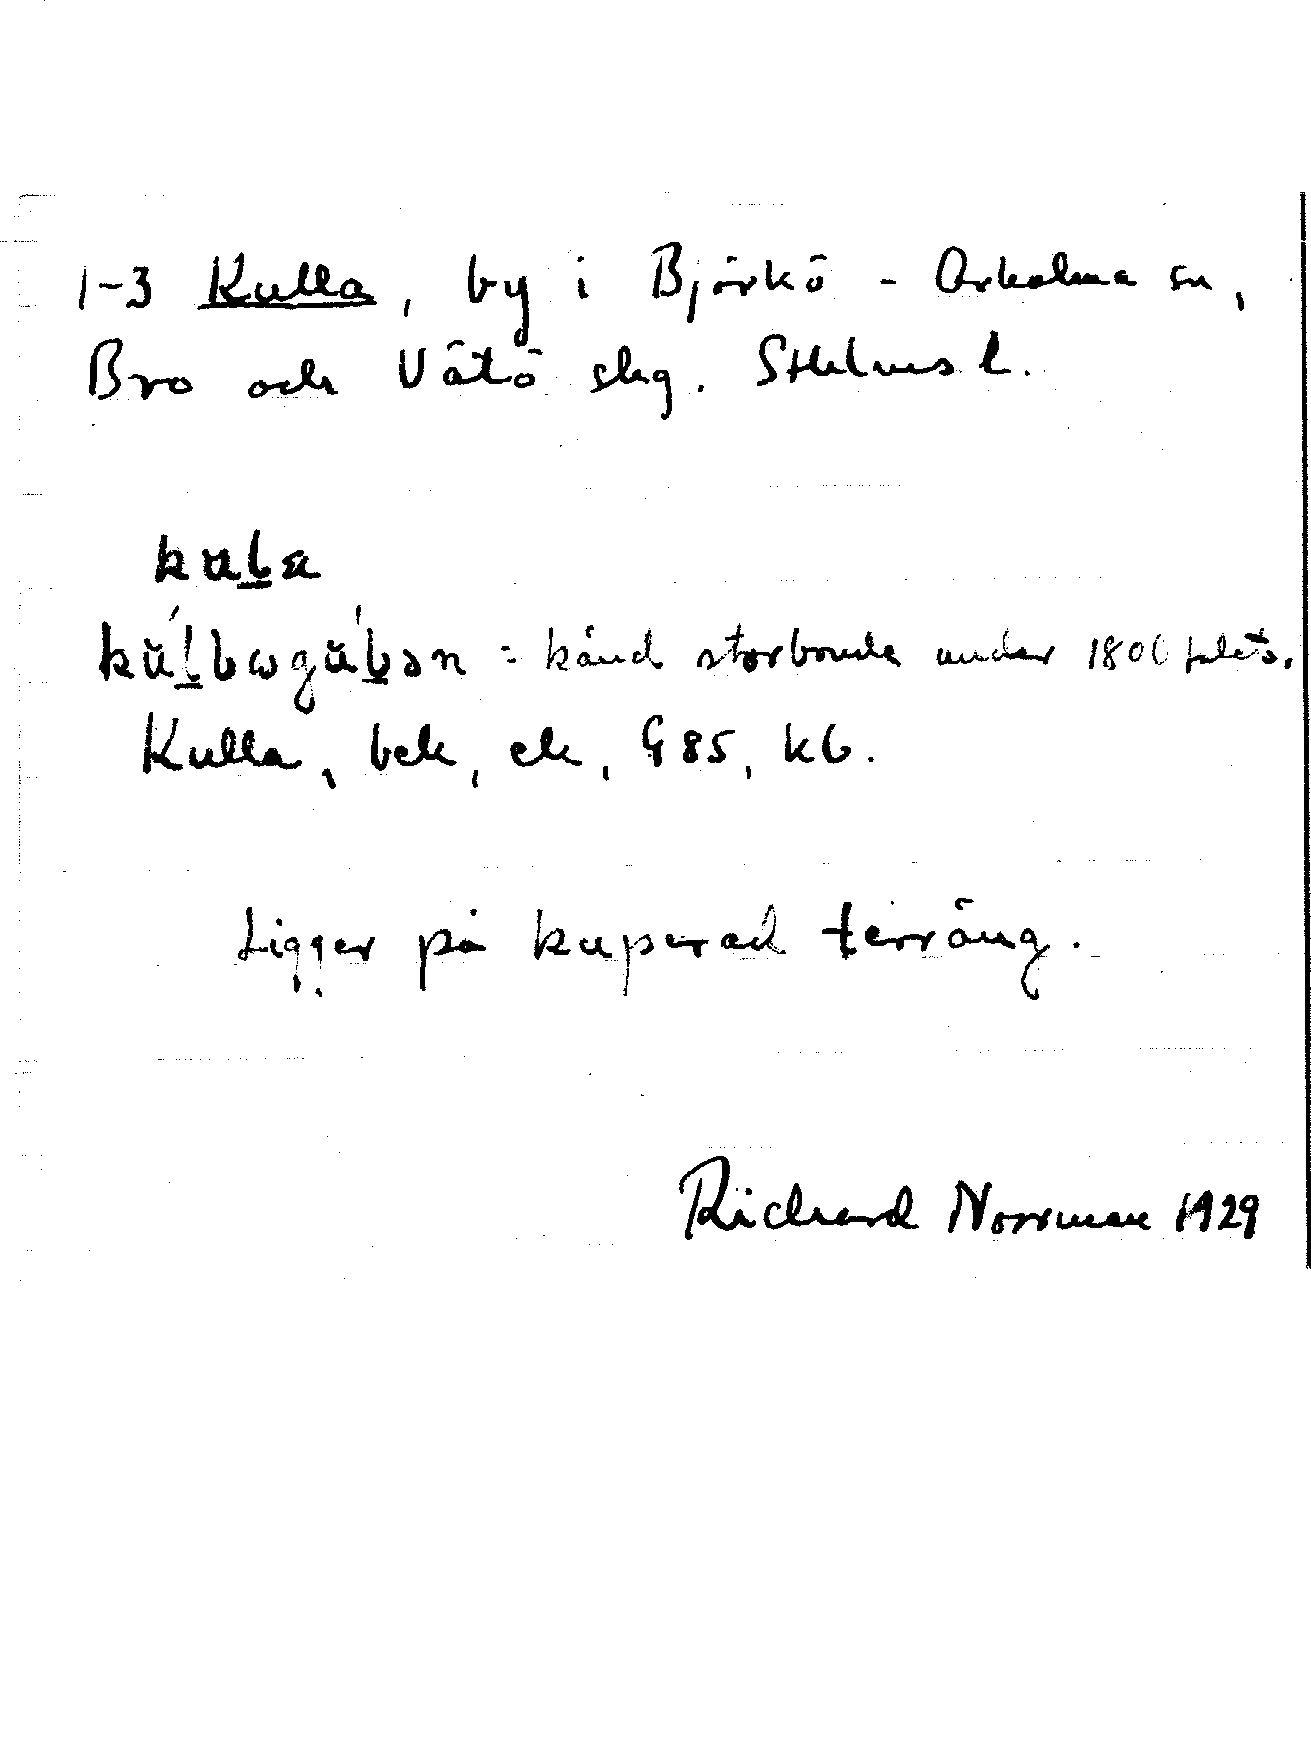 1-3 Kulla, by i Björkö - Arholma sn,
Bro och Vätö skg. Sthlms l.
kula
= känd storbonde under 1800 talets.
Kulla, bek, ek, G 85, kb.
Ligger på kuperad terräng.
Richard Norrman 1929